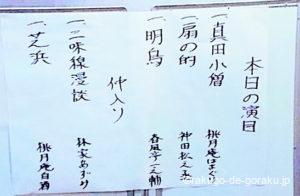 本日の演目
一、真田小僧 桃月庵はまぐり
一、扇の的 神田松之丞
一、明烏 春風亭一之輔
仲入り
一、三味線漫談 林家あずみ
一、芝浜 桃月庵白酒
©rakugo-de-goraku.jp